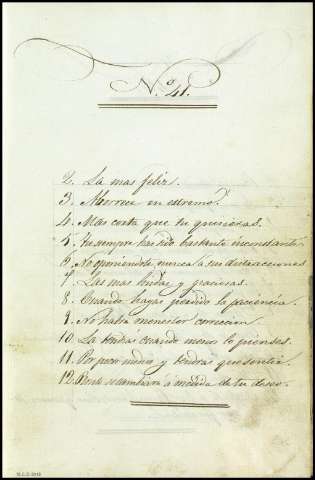 N.º 41.
2. La mas feliz.
3. Aborrece en estremo.
4. Mas corta que tu quisieras.
5. Tu siempre has sido bastante inconstante
6. No oponiendote nunca a sus distracciones
7. Las mas lindas y graciosas.
8. Cuando hayas perdido la paciencia.
9. No habrá menester
10. La tendras cuando menos lo pienses.
11. Por poco mimo y tendras que sentir.
12. á medida de tu deseo.